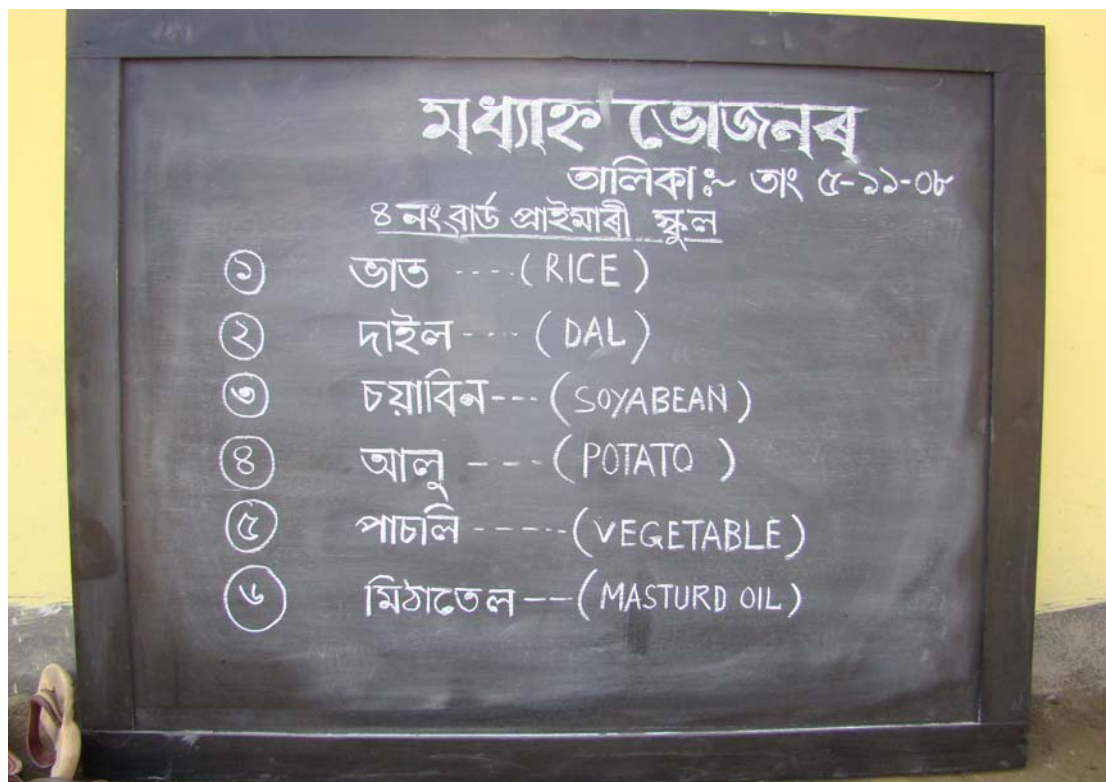 মধ্যাহ্ন ভোজনৰ
তালিকা :~ তাং ৫-১১-০৮
৪ নং ৱাৰ্ড প্ৰাইমাৰী স্কুল
১ ভাত ----(RICE)
২ দাইল ---- (DAL)
৩ চয়াবিন --- (SOYABEAN)
৪ আলু --- (POTATO)
৫ পাচলি ----- (VEGETABLE)
৬ মিঠাতেল -- (MASTURD OIL)